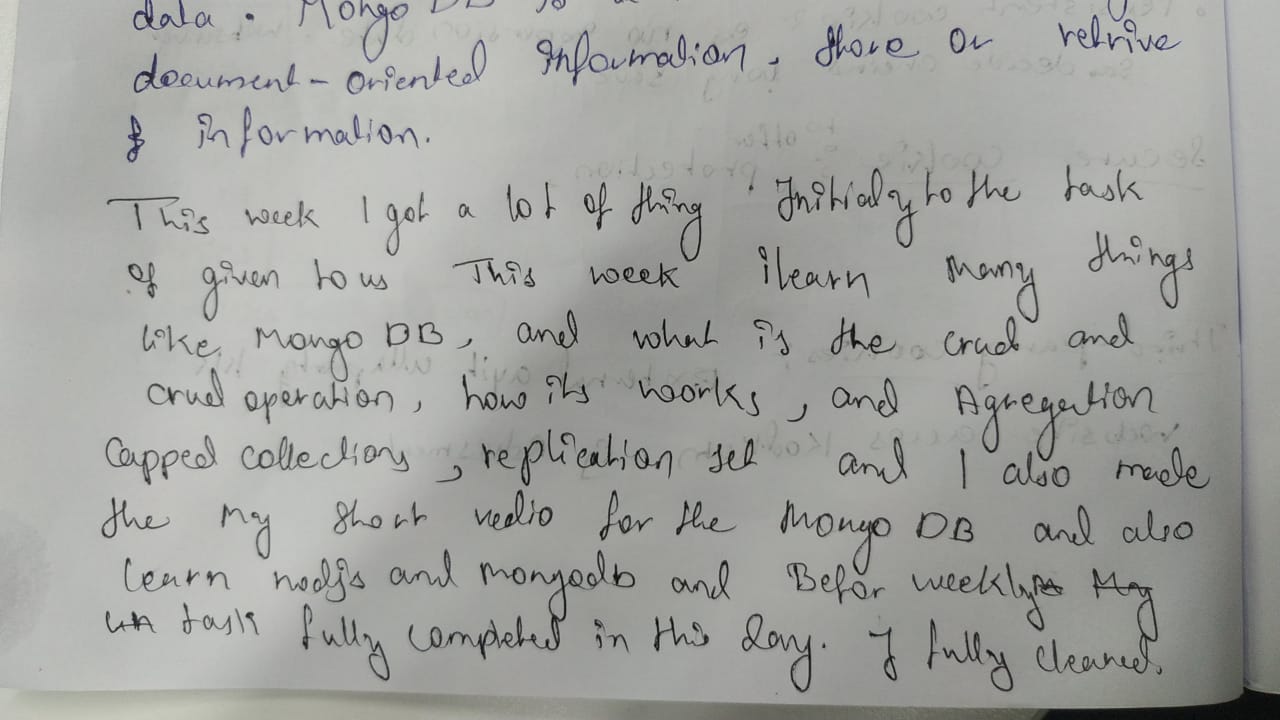 data. Mongo DB is a
document-oriented information, store or retrive
information.
This week I got a lot of thing Initialy to the task
of given to us This week i learn many things
like, Mongo DB, and what is the crud and
crud operation, how its works, and Agregation
Capped collections, replication set and I also made
the my short vedio for the Mongo DB and also
learn nodjs and mongodb and Befor weekly
task fully completed in this day. I fully cleaned.